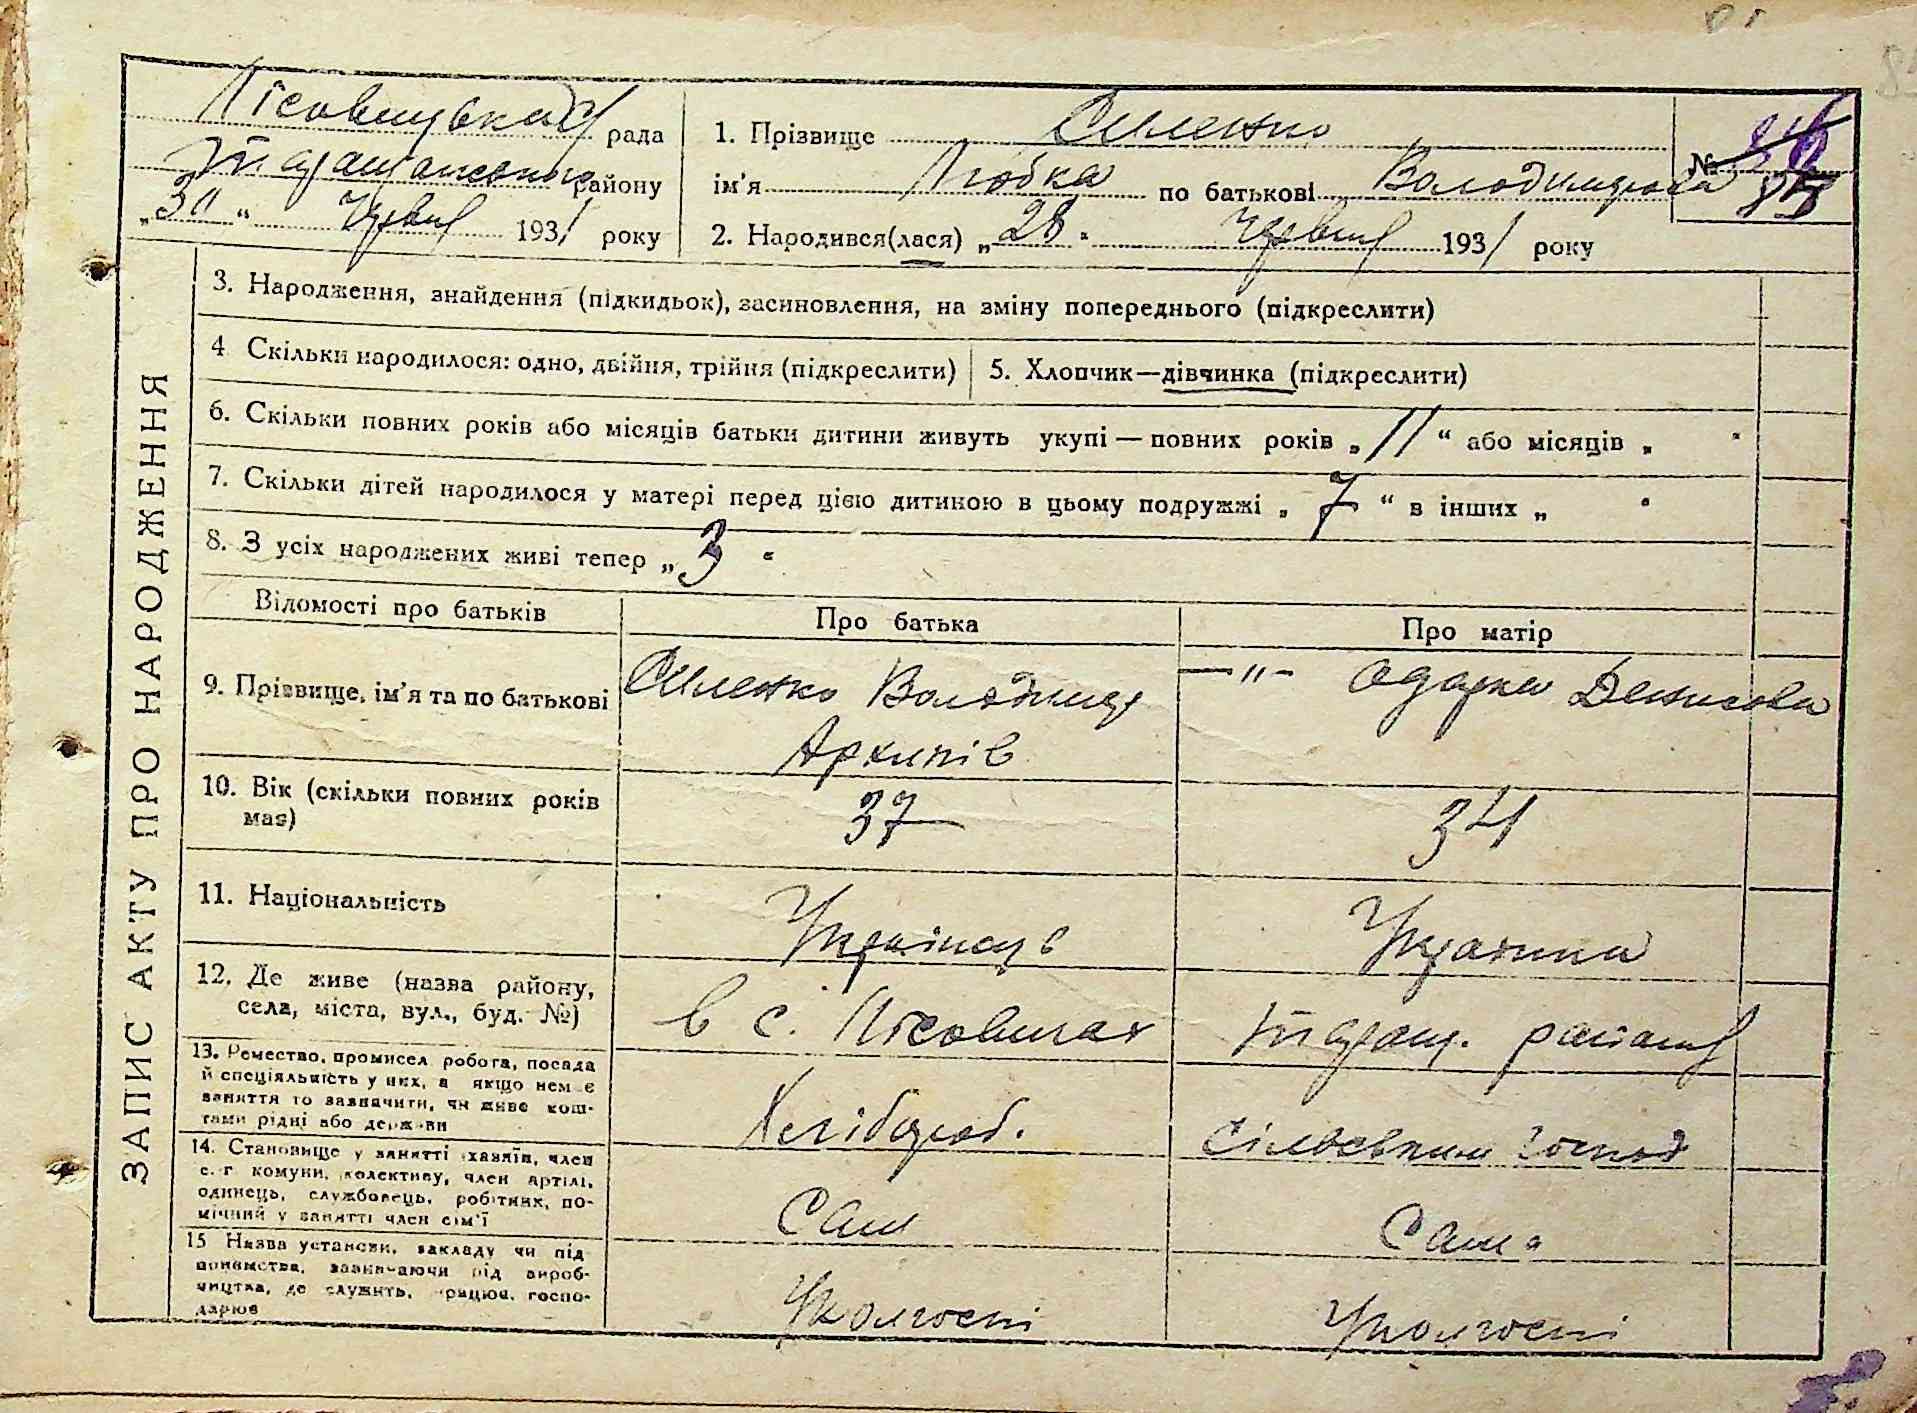 Лісовицька с/рада
Таращанського району
„30“ Червня 1931 року
1. Прізвище Силенко
ім'я Любка по батькові Володимирова
№ 85
2. Народився(лася) „28“ Червня 1931 року
ЗАПИС АКТУ ПРО НАРОДЖЕННЯ
3. Народження, знайдення (підкидьок), засиновлення, на зміну попереднього (підкреслити)
4 Скільки народилося: одно, двійня, трійня (підкреслити)
5. Хлопчик—дівчинка (підкреслити)
6. Скільки повних років або місяців батьки дитини живуть укупі — повних років „11“ або місяців „ “
7. Скільки дітей народилося у матері перед цією дитиною в цьому подружжі „7“ в інших „ “
8. З усіх народжених живі тепер „3“
Відомості про батьків Про батька Про матір
9. Прізвище, ім'я та по батькові Силенко Володимир Архипів —"— Одарка Денисова
10. Вік (скільки повних років має) 37 34
11. Національність Українець Українка
12. Де живе (назва району, села, міста, вул., буд. №) в с. Лісовичах Таращ. району
13. Ремество, промисел робота, посада й спеціяльність у них, а якщо нема є заняття то зазначити, чи живе коштами рідні або держави Хлібороб. Сільським господ
14. Становище у занятті хазяїн, член с.-г комуни, колективу, член артілі, одинець, службовець, робітник, помічний у занятті член сім'ї Сам Сама
15 Назва установи, закладу чи підприємства, зазначаючи рід виробництва, де служить, працює, господарює У колгоспі У колгоспі